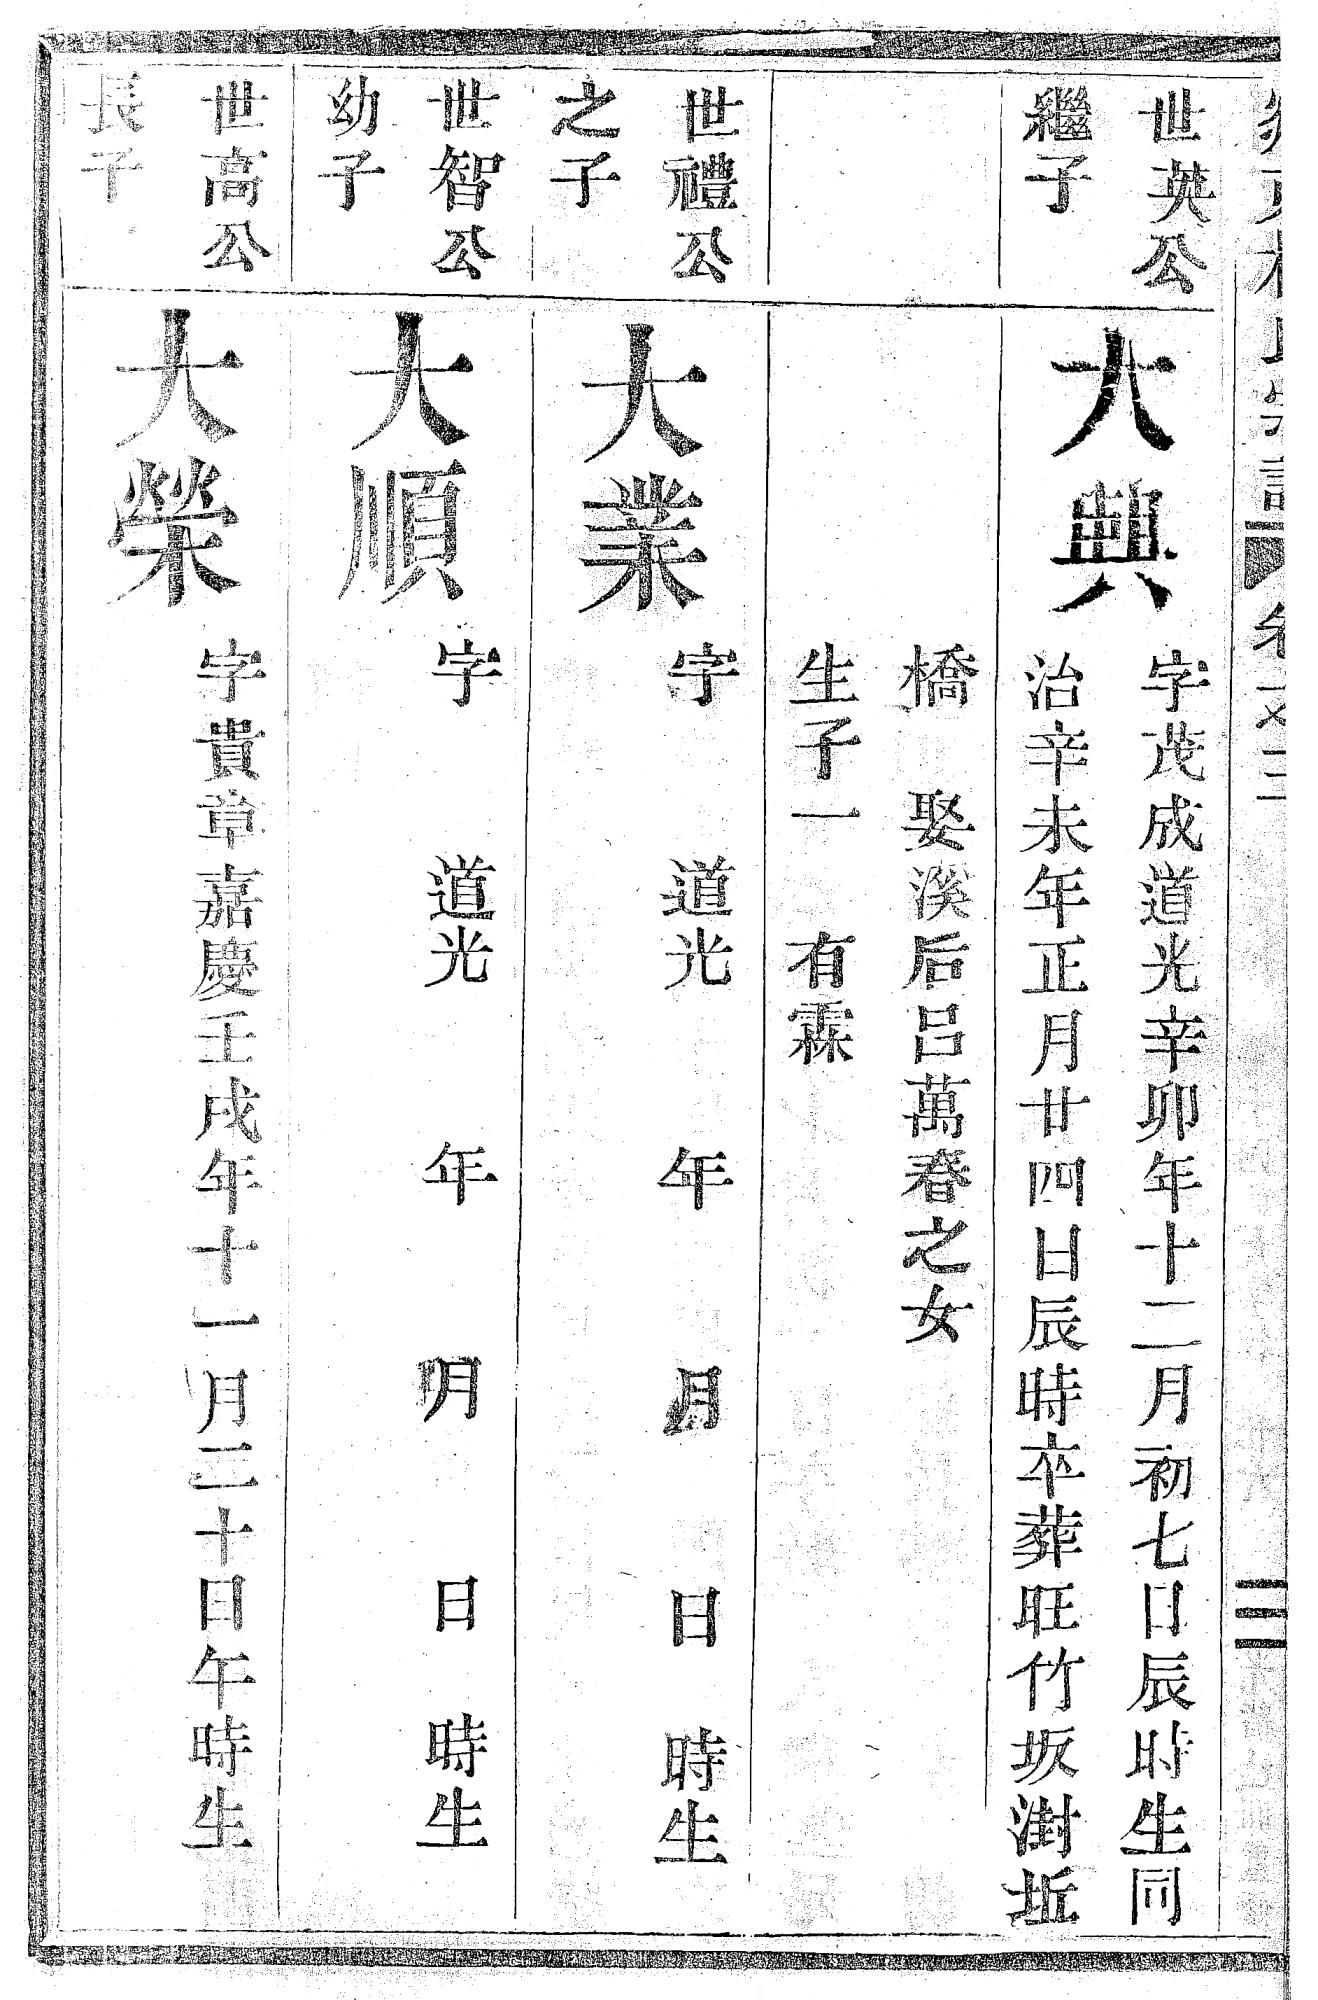 世英公
繼子
大興
字茂成道光辛卯年十二月初七日辰時生同
治辛未年正月廿四日辰時卒葬旺竹坂澍坵
橋 娶溪后呂萬春之女
生子一 有霖
世禮公
之子
大業
字 道光 年 月 日 時生
世智公
幼子
大順
字 道光 年 月 日 時生
世高公
長子
大榮
字貴章嘉慶壬戌年十一月二十日午時生
三